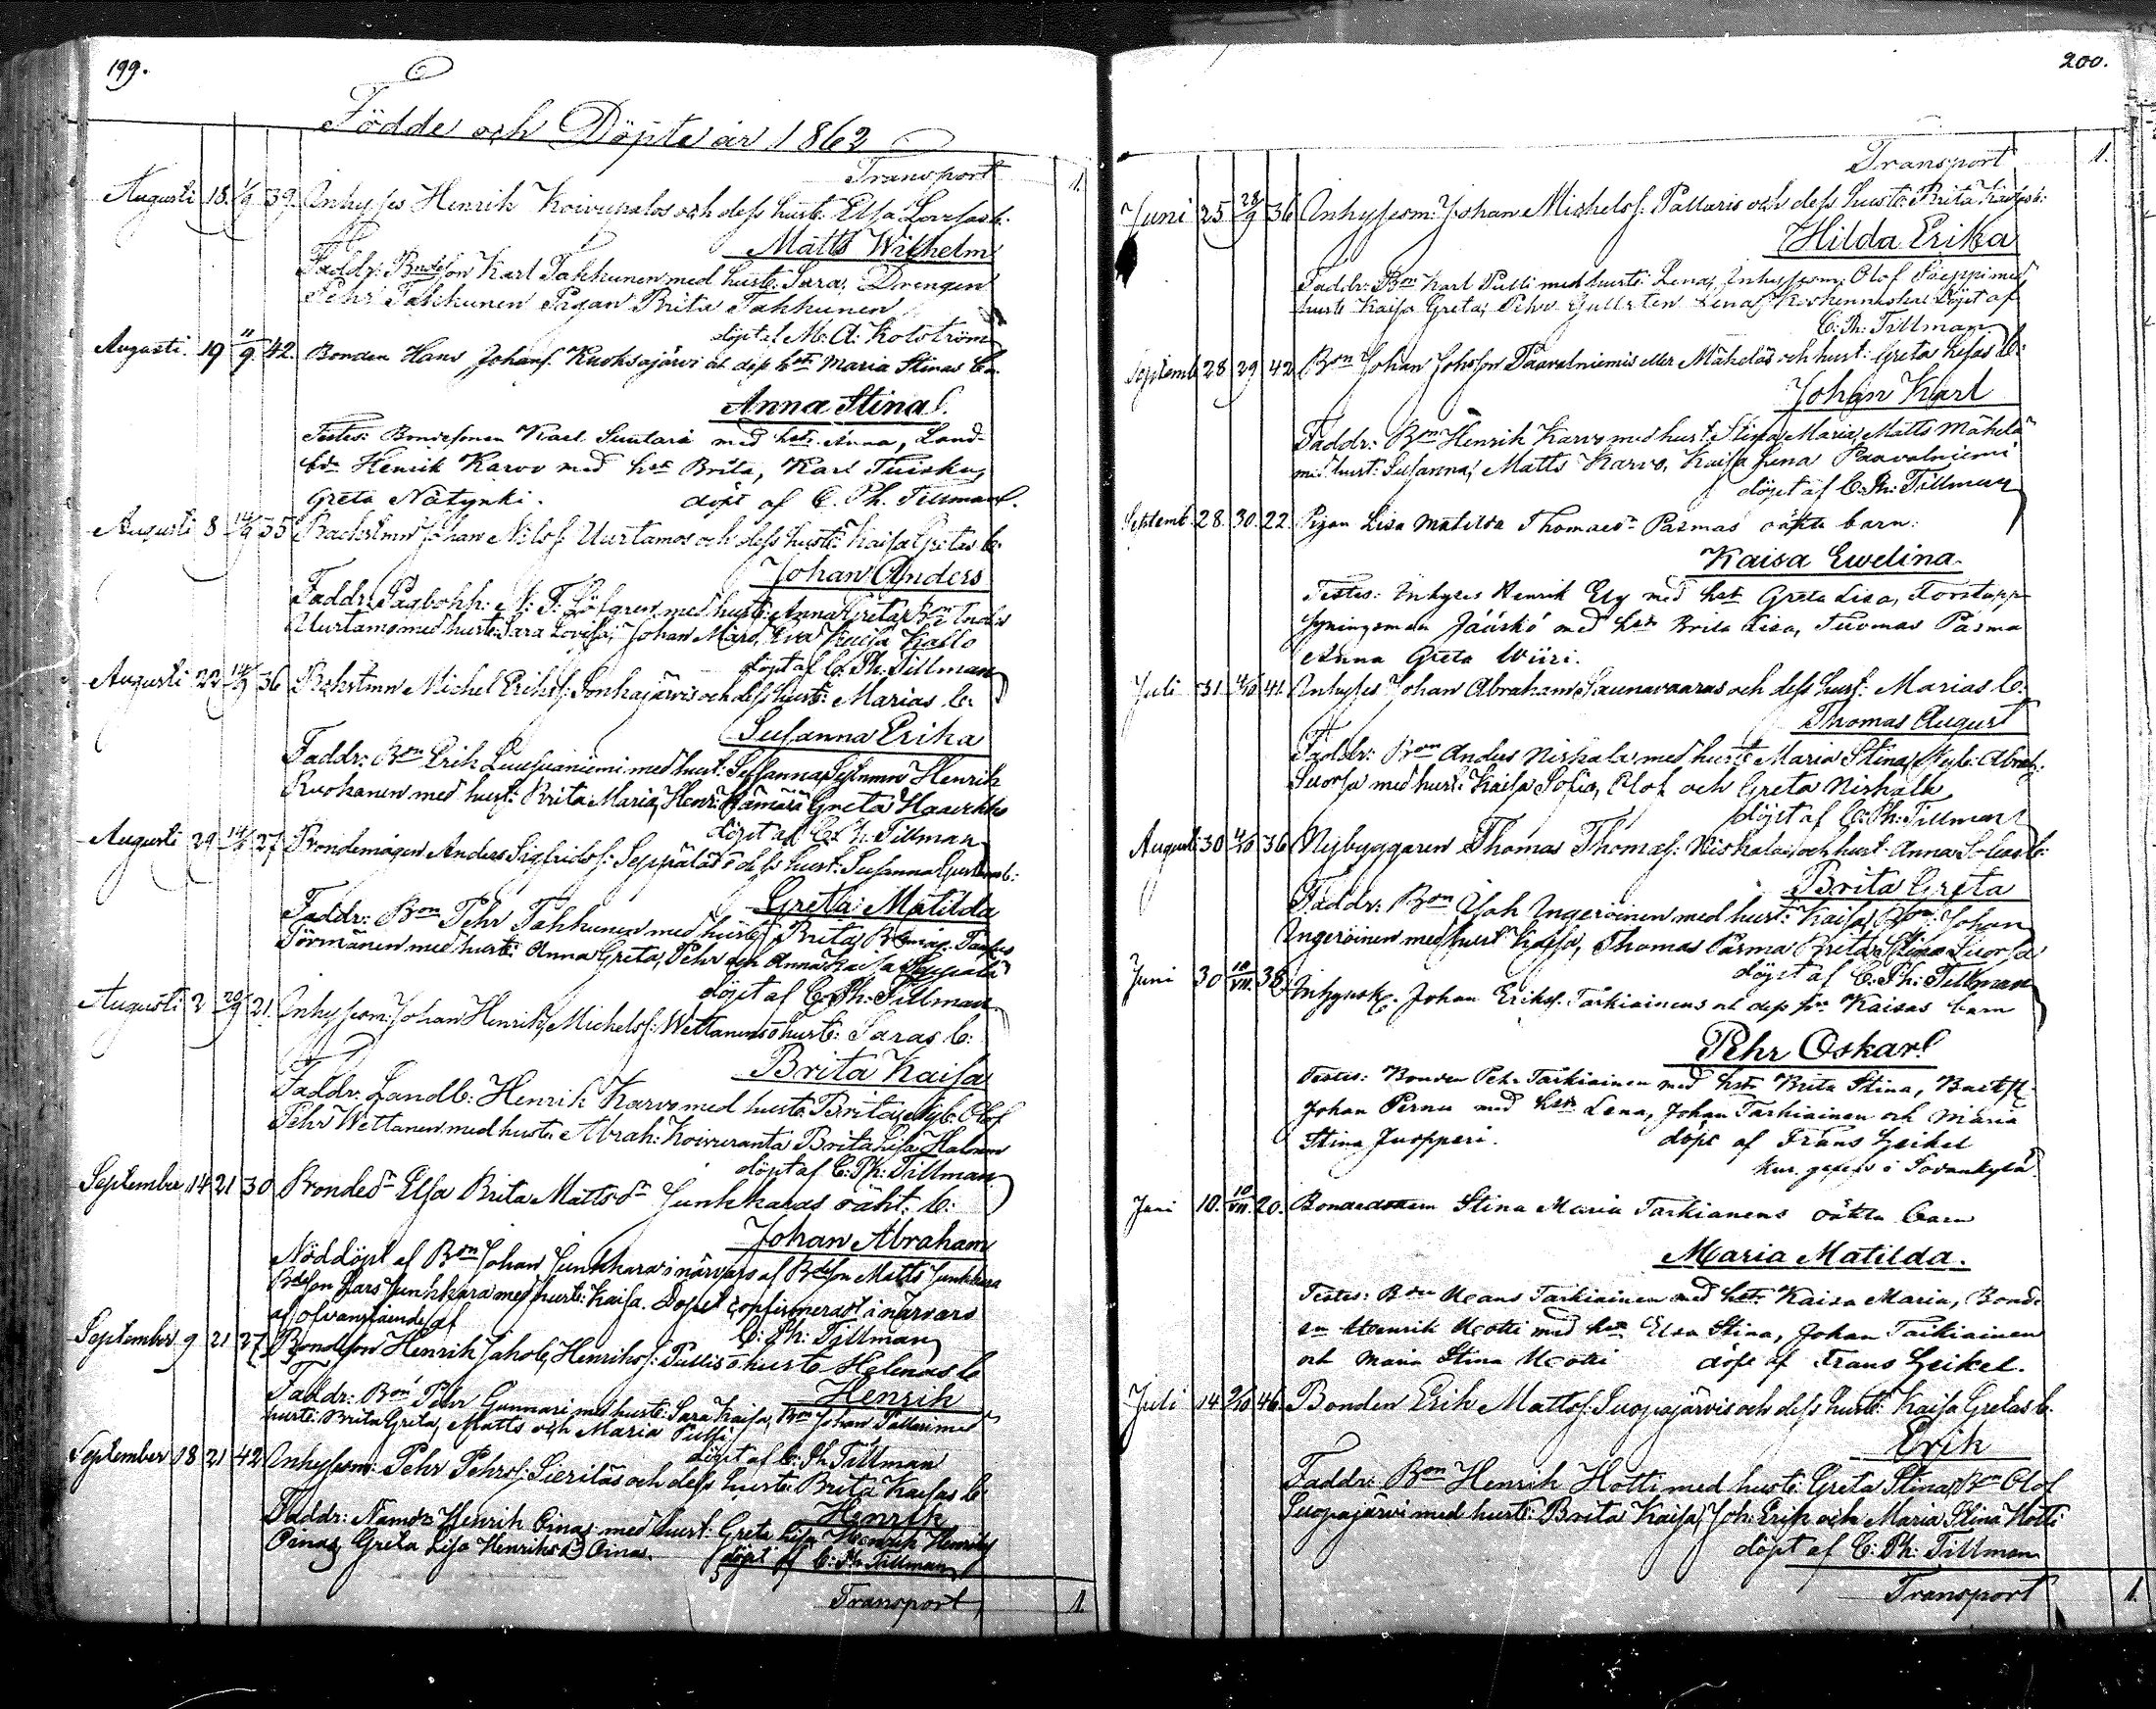 199.
Födde och Döpte år 1862
Transport 1.
Augusti 18. 1/9 39. Inhyses Henrik Koivupalos och dess hustr: Elsa Lovisas b:
Matts Wilhelm
Faddr: Bndeson Karl Takkunen med hustr: Sara, Drengen
Pehr Takkunen Pigan Brita Takkunen
döpt af M. A.
Augusti. 19 11/9 42. Bonden Hans Johansf. Kuoksajärvi at dess hstr Maria Stinas bn
Anna Stina.
Testes: Bondesonen Karl Suutari med hstr. Anna, Land-
bdn Henrik Karvo med hstr Brita, Karl Tuisku,
Greta Nätynki. döpt af C. Ph. Tillman.
Augusti 8 14/9 35 Backstmn Johan Nilsf. Uurtamos och dess hustr: Kaisa Gretas b.
Johan Anders
Faddr: N: F: Löfgren med hustr: Anna Greta, Bn Anders
Uurtamo med hustr: Sara Lovisa, Johan Eva Kaisa Kallo
döpt af C. Ph. Tillman
Augusti 22 14/9 36 Bakstmn Michel Eriksf: Sonkajärvis och dess hustr: Marias b:
Susanna Erika
Faddr: Bon Erik Luusuaniemi med hust: Susanna, Henrik
Ruokanen med hust: Brita Maria, Henr: Hämärä Greta
döpt af C. Ph. Tillman
Augusti 29 14/9 27 Bondemågen Anders Sigfridsf: Seppäläs o dess hust: Susanna b:
Greta Matilda
Faddr: Bon Pehr Takkunen med hustr: Brita,
Törmänen med hustr: Anna Greta, Pehr och Anna Kaisa Seppälä
döpt af C. Ph. Tillman
Augusti 2 20/9 21. Inhysesm: Johan Henrik Michelsf: Wettanens o hustr: Saras b:
Brita Kaisa
Faddr. Landb: Henrik Karvo med hustr: Brita, Nyb: Olof
Pehr Wettanen med hustr: Abrah: Koivuranta Brita Lisa
döpt af C: Ph: Tillman
September 14 21 30 Bondedr Elsa Brita Matts dr Junkkaras oäkt: b:
Johan Abraham
Nöddöpt af Bon Johan Junkkara i närvaro af Bdson Matts Junkkara
Bdson Lars Junkkara med hustr: Kaisa. Dopet confirmeradt i närvaro
af ofvanstående af
C: Ph: Tillman
September 9 21 27 Bondeson Henrik Jakob Henriksf: Pullis o hustr Helenas b
Henrik
Faddr: Bon Pehr Gunnari med hustr: Sara Kaisa, Bon Johan Pallari med
hustr: Brita Greta, Matts och Maria Pulli
döpt af C. Ph Tillman
September 18 21 42 Inhysesm: Pehr Pehrsf: Sieriläs och dess hustr: Brita Kaisas b
Henrik
Faddr: Nämdn Henrik Oinas med hust: Greta Lisa Henrik Henriksf
Oinas, Greta Lisa Henriksdr Oinas. döpt af C: Ph Tillman
Transport 1.
200.
Transport 1.
Juni 25 28/9 36 Inhysesm: Johan Michelsf. Pallaris och dess hustr: Brita Kaisas b:
Hilda Erika
Faddr: Bon Karl Pulli med hustr: Lena, Inhysesm: Olof Säeppi med
hustr Kaisa Greta, Pehr Gullsten Lena Döpt af
C. Ph. Tillman
Septemb 28 29 42 Bon Johan Johsson Paavalniemis eller Mäkeläs och hust: Greta Lisas b:
Johan Karl
Faddr: Bon Henrik Karvo med hust: Stina Maria, Matts Mäkelä
med hust: Susanna, Matts Karvo, Kaisa Lena Paavalniemi
döpt af C: Ph: Tillman
Septemb. 28. 30. 22. Pigan Lisa Matilda Thomædr Pasmas oäkta barn:
Kaisa Ewelina.
Testes: Inhyses Henrik Ely med hst Greta Lisa, Torstapp-
syningsman Jääskö med hstr Brita Lisa, Tuomas Pasma
Anna Greta Wiiri.
Juli 31. /10 41. Inhyses Johan Abraham Saunavaaras och dess hust: Marias b:
Thomas August
Faddr: Bon Anders Niskala med hustr Maria Stina, Nyb: Abrah:
Suorsa med hust: Kaisa Sofia, Olof och Greta Niskala
döpt af C. Ph: Tillman
Augusti 30 /10 36 Nybyggaren Thomas Thomasf. Niskalas och hust. Anna Sofias b:
Brita Greta
Faddr: Bon Joh Ingeröinen med hust: Kaisa, Bon: Johan
Ingeröinen med hust Kaisa, Thomas Pasma Brita Stina Suorsa
döpt af C. Ph: Tillman
Juni 30 10/VII. 38. Johan Eriksf. Tarkiainens at dess hu Kaisas barn
Pehr Oskar
Testes: Bonden Pehr Tarkiainen med hstr Brita Stina, Backst.
Johan Pernu med hstr Lena, Johan Tarkiainen och Maria
Stina Juopperi. döpt af Frans Heikel
i Sodankylä
Juni 10. 10/VII. 20. Stina Maria Tarkianens oäkta barn
Maria Matilda.
Testes: Bon Hans Tarkiainen med hstr. Kaisa Maria, Bond-
en Henrik Hotti med hstr Elsa Stina, Johan Tarkiainen
och Maria Stina Hotti döpt af Frans Heikel.
Juli 14 2/10 46. Bonden Erik Mattsf. Suopajärvis och dess hustr: Kaisa Gretas b.
Erik
Faddr: Bon Henrik Hotti med hustr: Greta Stina, Bon Olof
Suopajärvi med hustr: Brita Kaisa, Joh: Erik och Maria Stina Hotti
döpt af C: Ph: Tillman
Transport 1.